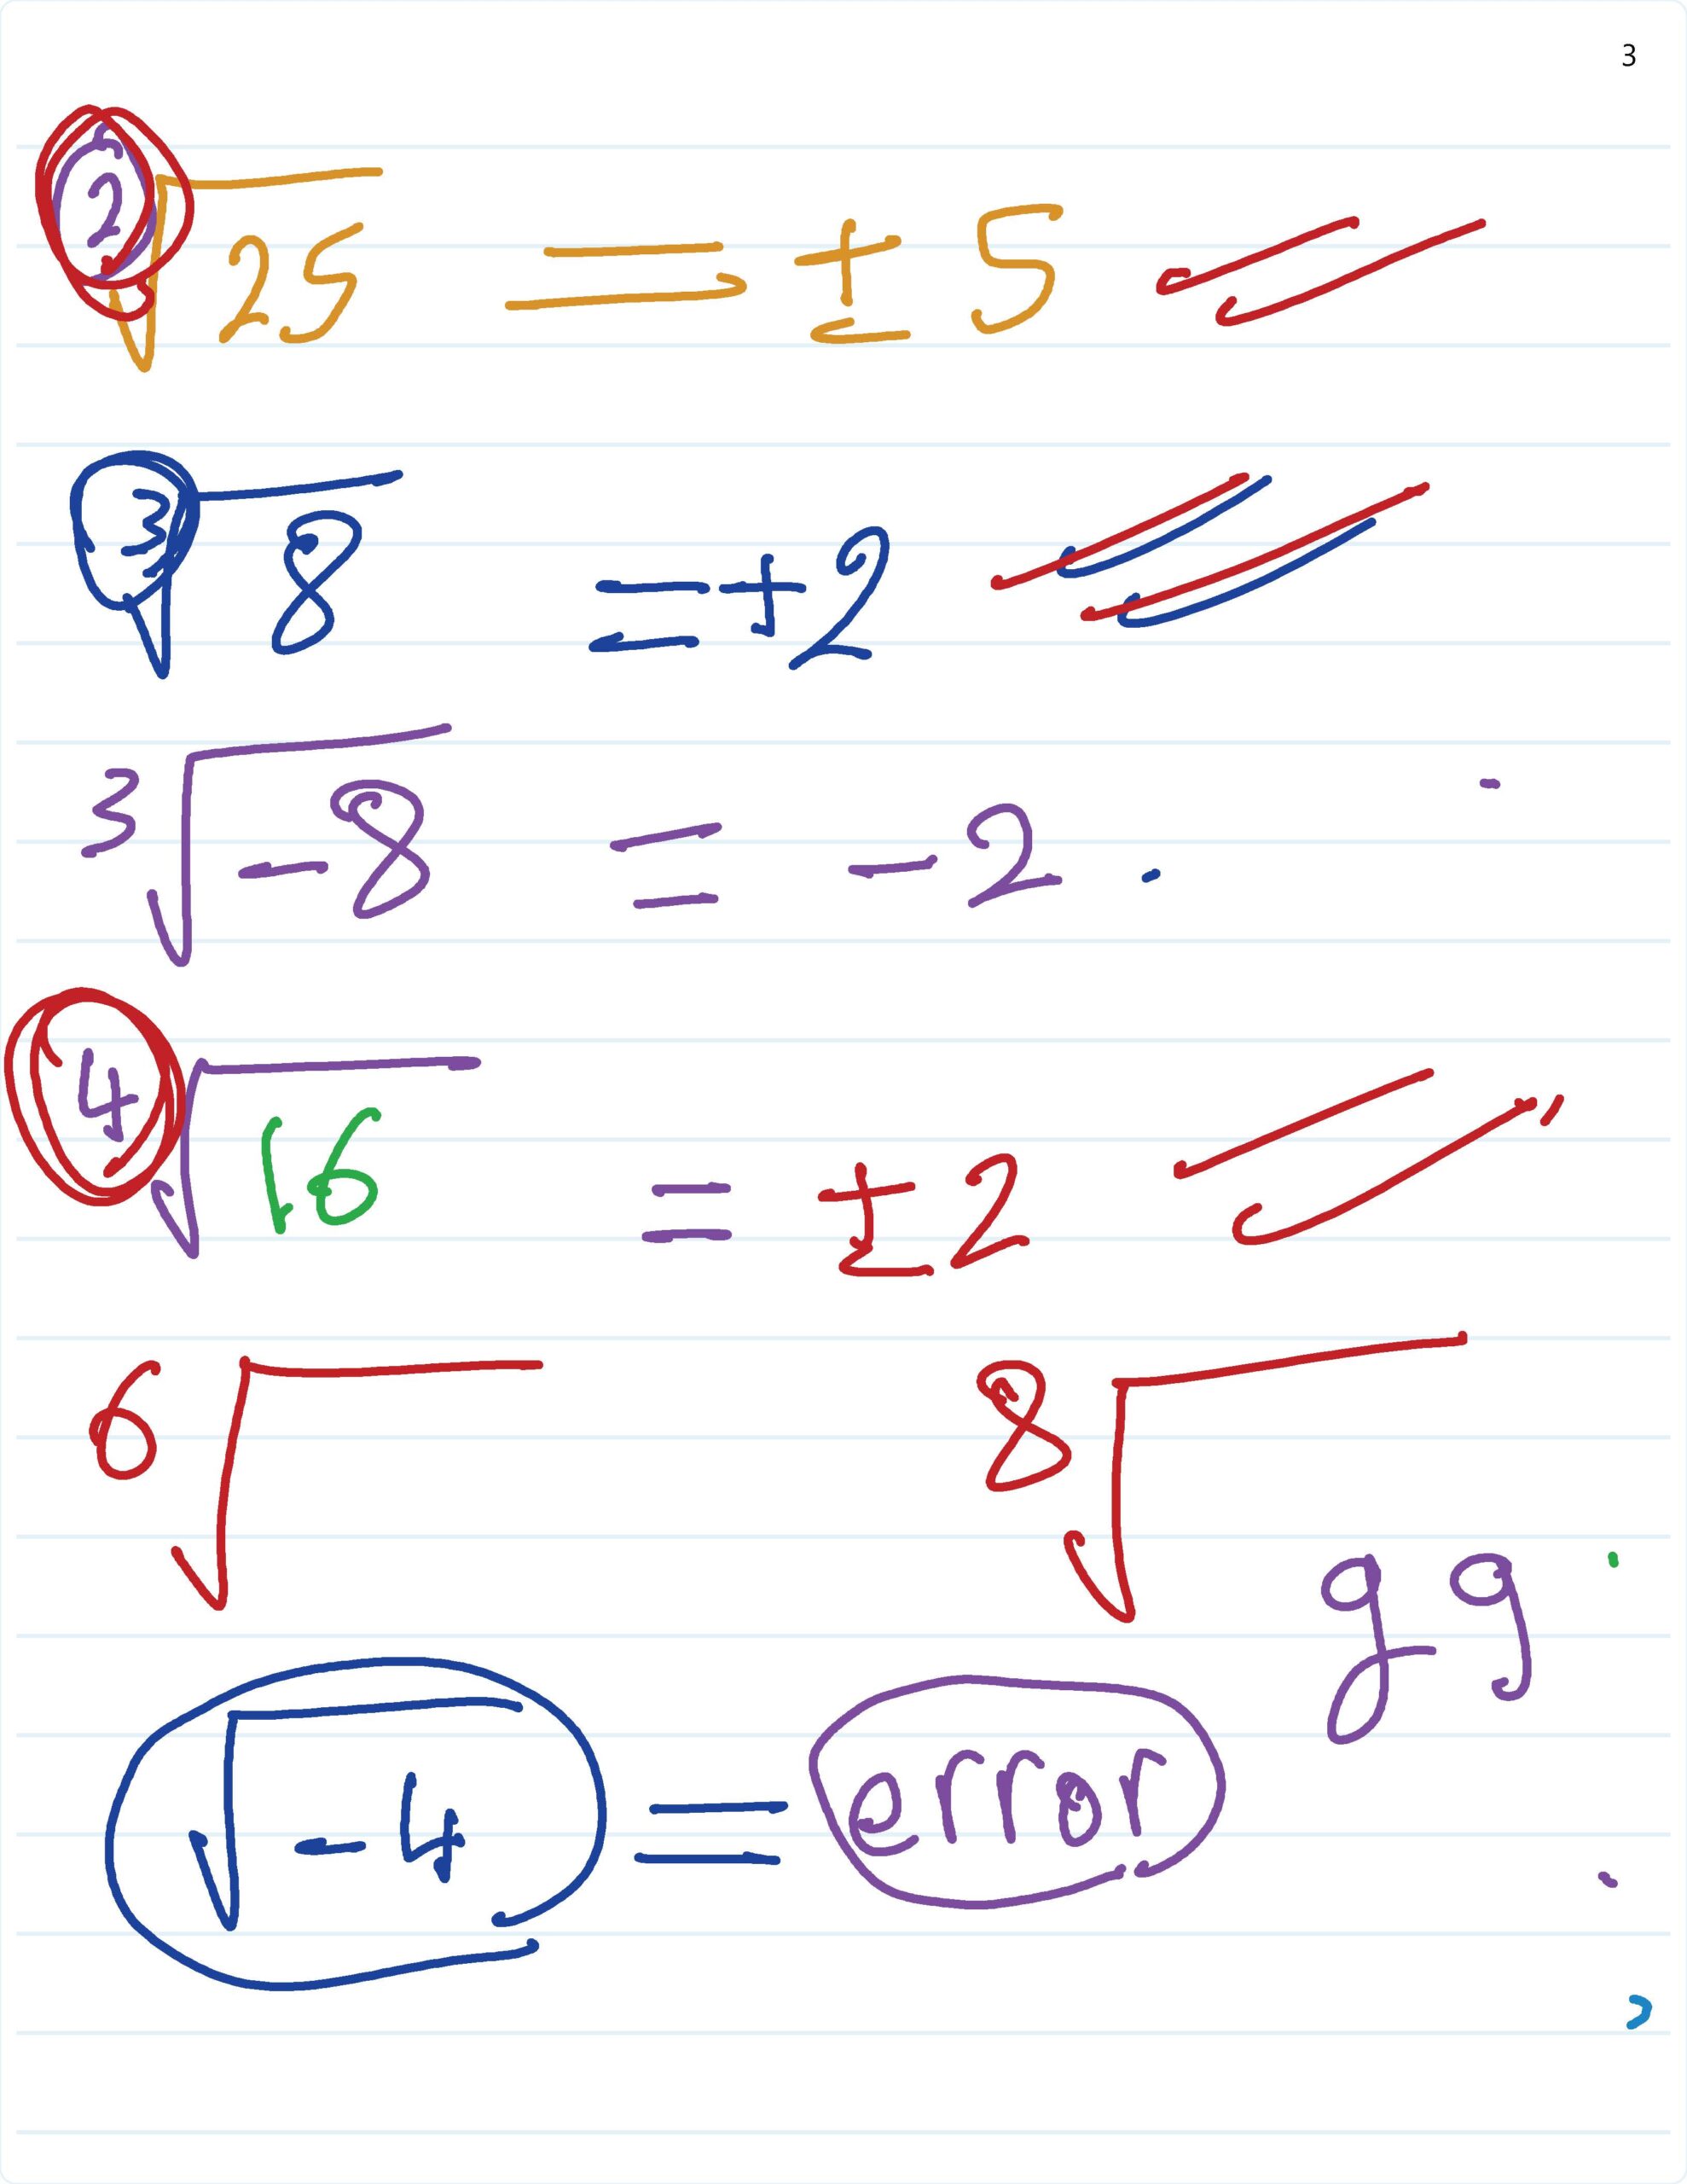 3
²√25 = ± 5
³√8 = +2
³√-8 = -2
⁴√16 = ±2
⁶√ ⁸√
g g
√-4 = error